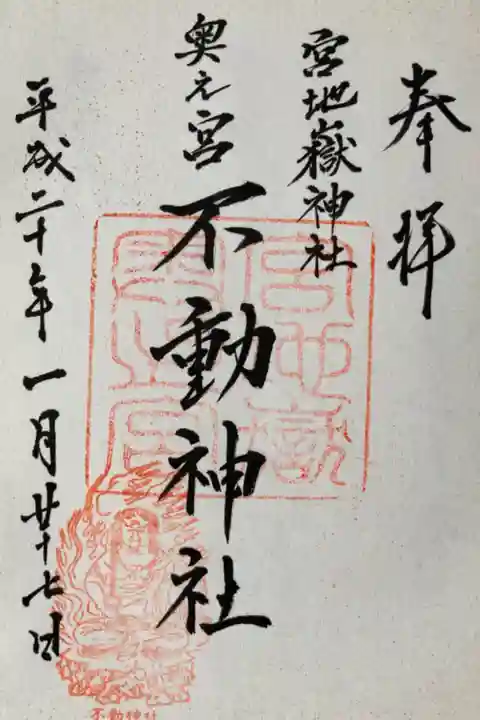 奉拝
宮地嶽神社
奥之宮
不動神社
平成二十年一月廿七日
不動神社